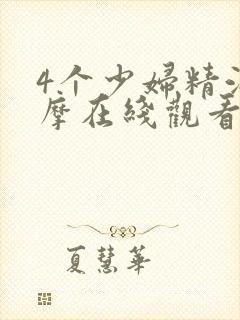 4.个少婦精油
摩在线觀看
夏慧華